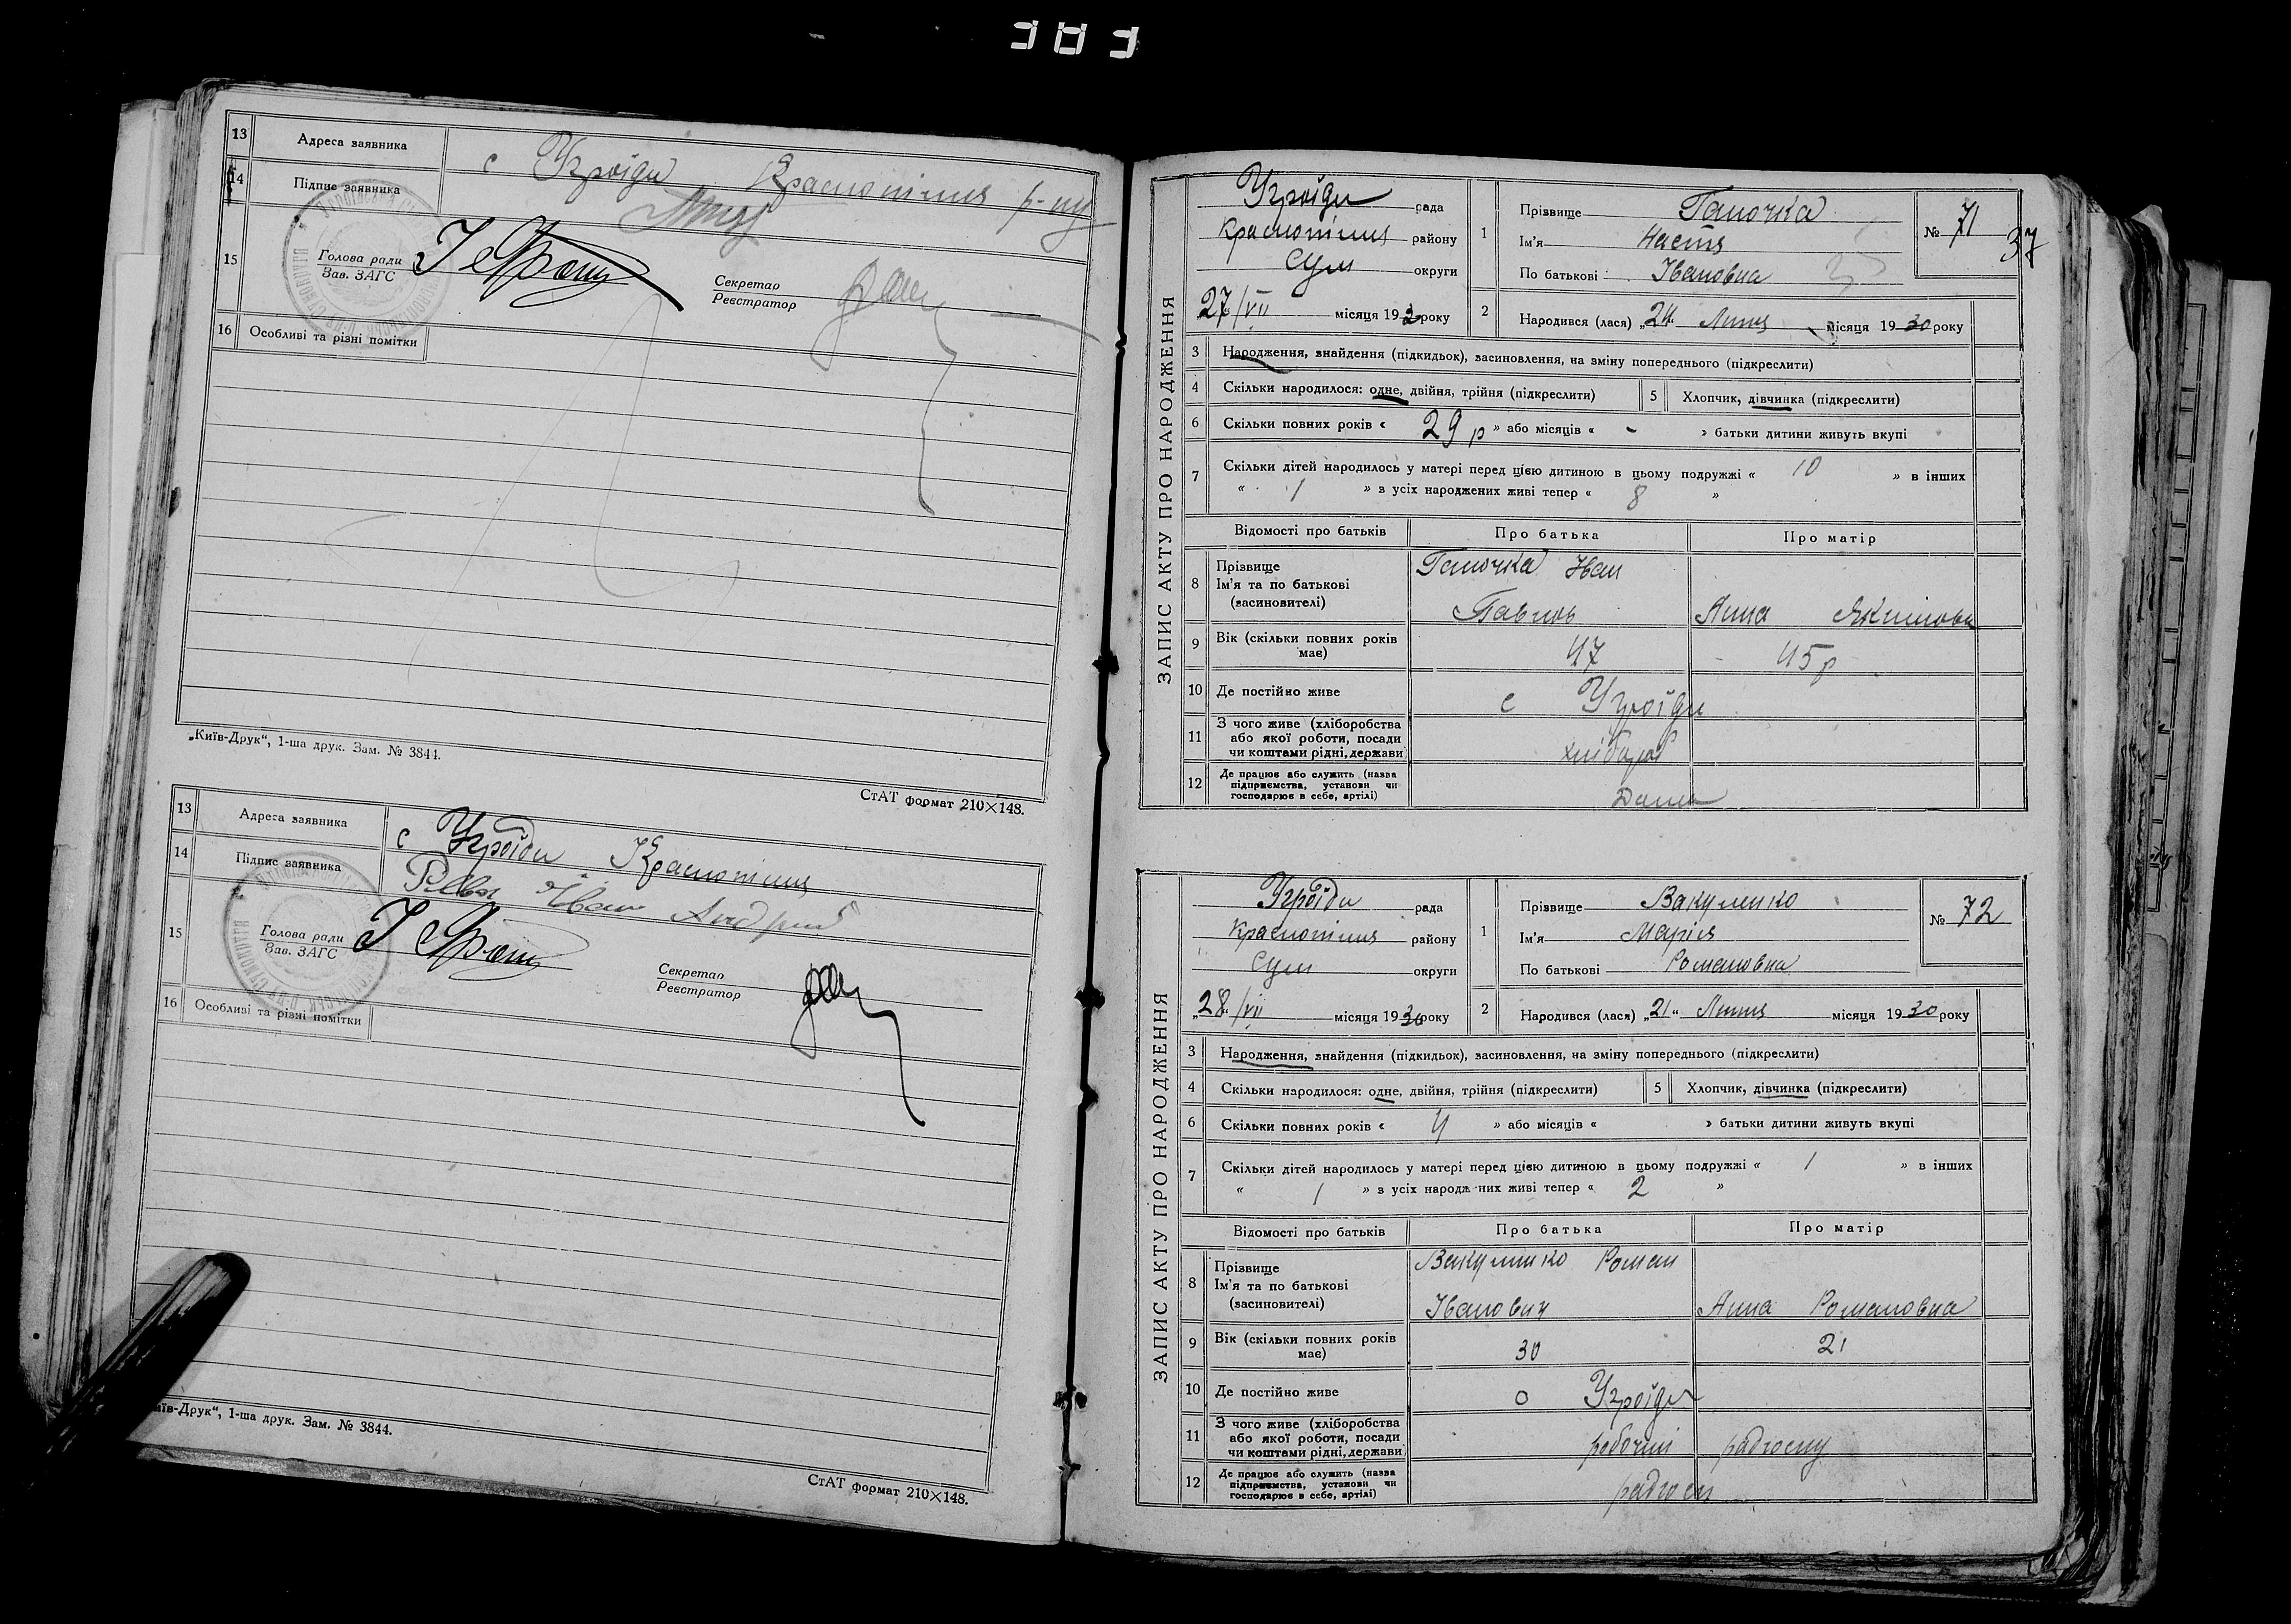 303
13 Адреса заявника с Угроїди Краснопілля р-ну
14 Підпис заявника
15 Голова ради
Зав. ЗАГС
Секретар
Реєстратор
16 Особливі та різні помітки
„Київ-Друк“, 1-ша друк. Зам. № 3844.
СтАТ формат 210×148.
13 Адреса заявника с Угроїди Краснопілля
14 Підпис заявника Іван Андрий
15 Голова ради
Зав. ЗАГС
Секретар
Реєстратор
16 Особливі та різні помітки
їв-Друк“, 1-ша друк. Зам. № 3844.
СтАТ формат 210×148.
ЗАПИС АКТУ ПРО НАРОДЖЕННЯ
Угроїди рада
Краснопілля району
Сум округи
„27“/VII місяця 193 року
1 Прізвище Гапочка
Ім'я Настя
По батькові Івановна
№ 71
37
2 Народився (лася) „24“ Липня місяця 1930 року
3 Народження, знайдення (підкидьок), засиновлення, на зміну попереднього (підкреслити)
4 Скільки народилося: одне, двійня, трійня (підкреслити) 5 Хлопчик, дівчинка (підкреслити)
6 Скільки повних років « 29 р » або місяців « - » батьки дитини живуть вкупі
7 Скільки дітей народилось у матері перед цією дитиною в цьому подружжі « 10 » в інших
« 1 » з усіх народжених живі тепер « 8 »
Відомості про батьків Про батька Про матір
8 Прізвище
Ім'я та по батькові
(засиновителі)
Гапочка Іван
Павлов Анна Якимовн
9 Вік (скільки повних років
має) 47 45 р
10 Де постійно живе с Угроїди
11 З чого живе (хліборобства
або якої роботи, посади
чи коштами рідні, держави) хлібороб
12 Де працює або служить (назва
підприємства, установи чи
господарює в себе, артілі) Дома
ЗАПИС АКТУ ПРО НАРОДЖЕННЯ
Угроїди рада
Краснопілля району
Сум округи
„28“/VII місяця 1930 року
1 Прізвище Вакуленко
Ім'я Марія
По батькові Романовна
№ 72
2 Народився (лася) „21“ Липня місяця 1930 року
3 Народження, знайдення (підкидьок), засиновлення, на зміну попереднього (підкреслити)
4 Скільки народилося: одне, двійня, трійня (підкреслити) 5 Хлопчик, дівчинка (підкреслити)
6 Скільки повних років « 4 » або місяців « » батьки дитини живуть вкупі
7 Скільки дітей народилось у матері перед цією дитиною в цьому подружжі « 1 » в інших
« 1 » з усіх народж них живі тепер « 2 »
Відомості про батьків Про батька Про матір
8 Прізвище
Ім'я та по батькові
(засиновителі)
Вакуленко Роман
Іванович Анна Романовна
9 Вік (скільки повних років
має) 30 21
10 Де постійно живе с Угроїди
11 З чого живе (хліборобства
або якої роботи, посади
чи коштами рідні, держави) робочий радгоспу
12 Де працює або служить (назва
підприємства, установи чи
господарює в себе, артілі) радгосп